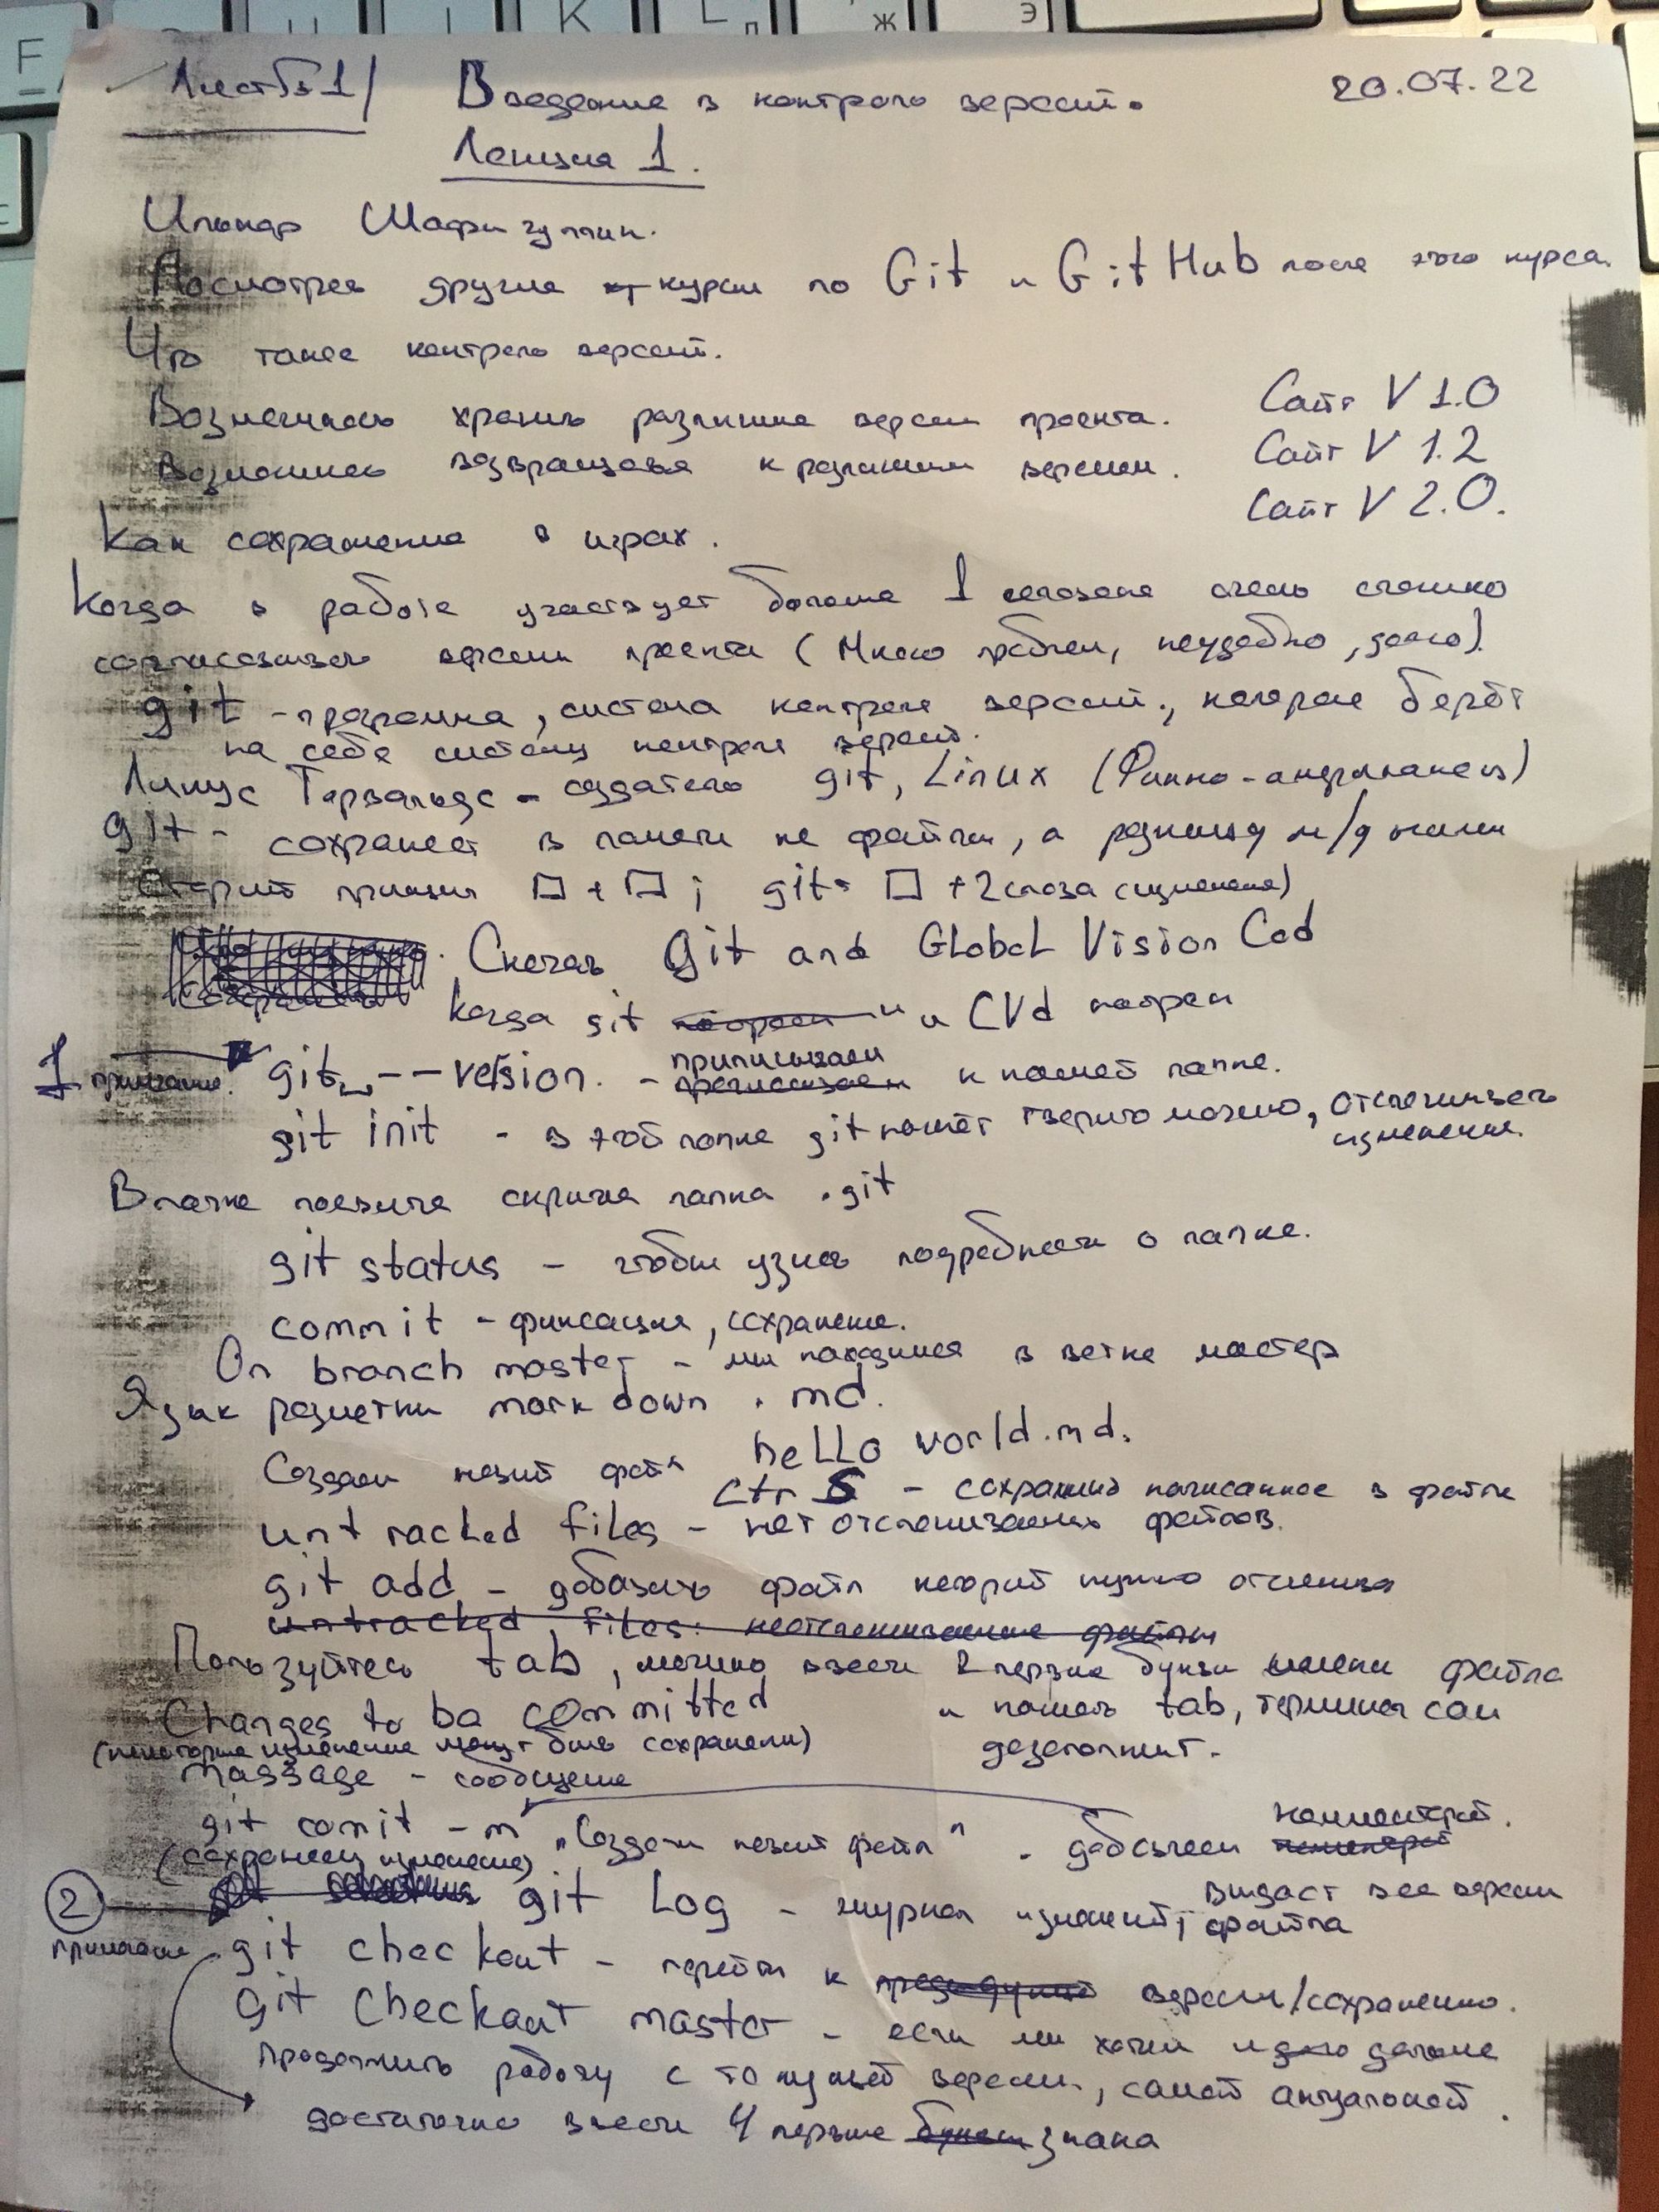 Лист №1 / Введение в контроль версий. 20.07.22
Лекция 1.
Ильнар Шафигуллин.
Посмотреть другие курсы по Git и GitHub после этого курса.
Что такое контроль версий.
Возможность хранить различные версии проекта. Сайт V 1.0
Возможность возвращаться к различным версиям. Сайт V 1.2
Сайт V 2.0.
Как сохранение в играх.
Когда в работе участвует больше 1 человека очень сложно
согласовывать версии проекта (Много проблем, неудобно, долго).
git - программа, система контроля версий, которая берёт
на себя систему контроля версий.
Линус Торвальдс - создатель git, Linux (Финно-американец)
git - сохраняет в памяти не файлы, а разницу м/д ними
Старый принцип □ + □ ; git = □ + 2 слова (изменения)
Скачать Git and Global Vision Cod
Когда git и CVd настроен
1 примечание. git --version. - приписываем к нашей папке.
git init - в этой папке git может творить можно, отслеживать
изменение.
В папке появится скрытая папка .git
git status - чтобы узнать подробности о папке.
commit - фиксация, сохранение.
On branch master - мы находимся в ветке мастер
Язык разметки markdown .md.
Создаем новый файл hello world.md.
Ctr S - сохранить написанное в файле
untracked files - нет отслеживаемых файлов.
git add - добавить файл который нужно отслеживать
untracked files: неотслеживаемые файлы
Пользуйтесь tab, можно ввести 2 первые буквы имени файла
Changes to ba committed и нажать tab, терминал сам
(некоторые изменения могут быть сохранены) дозаполнит.
massage - сообщение
git comit -m "Создали новый файл" - добавляем комментарий.
(сохраняем изменение)
2 git Log - журнал изменений; выдаст все версии
примечание файла
git checkout - перейти к версии/сохранению.
git checkout master - если мы хотим идти дальше
продолжить работу с текущей версии, самой актуальной.
достаточно ввести 4 первые знака